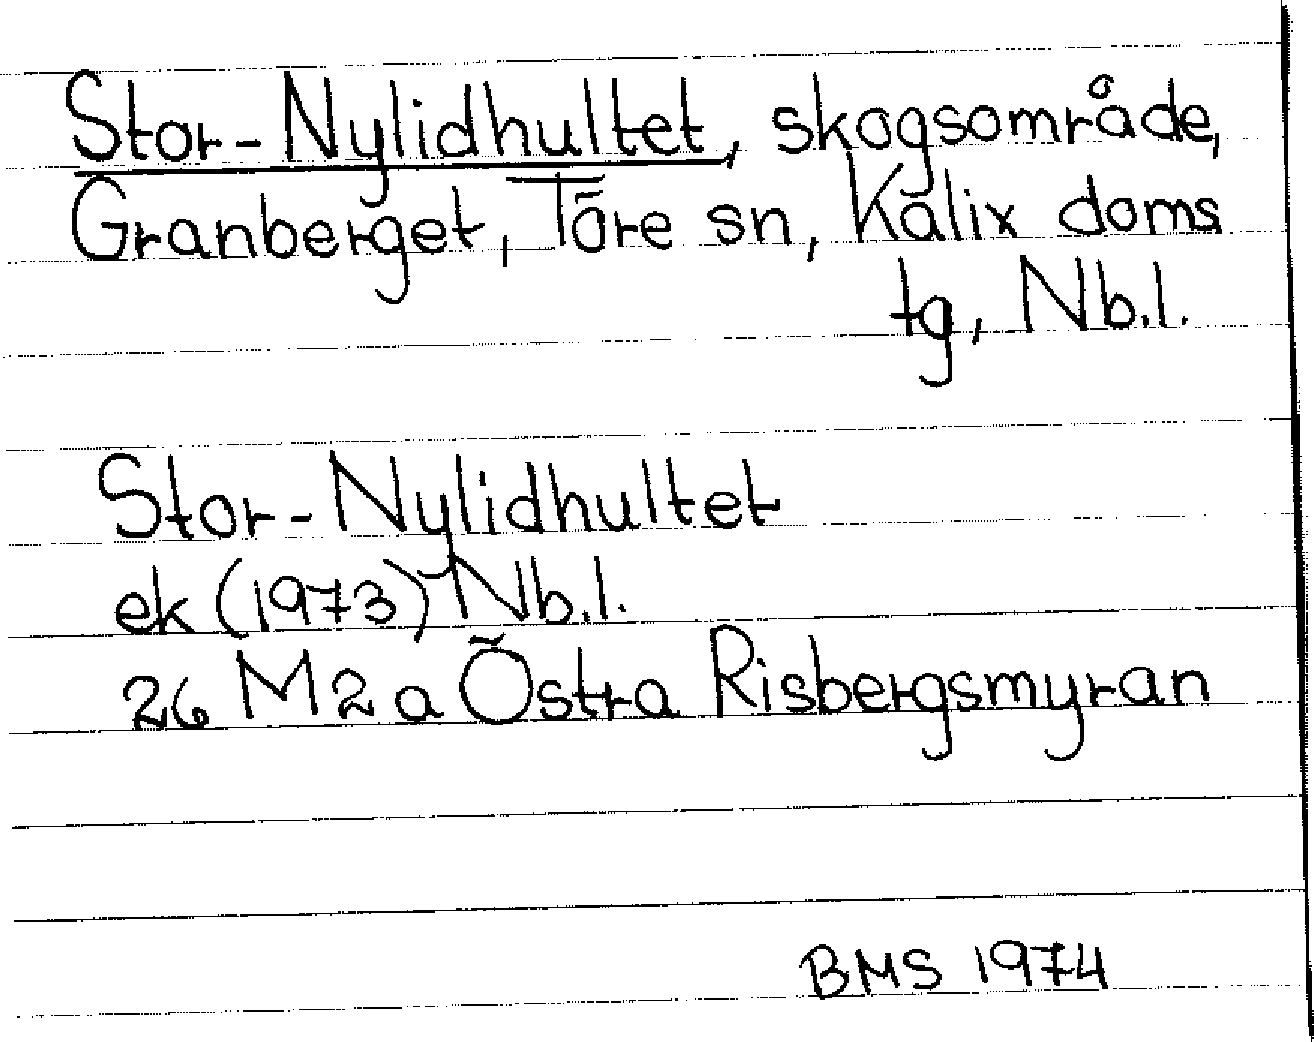 Stor-Nylidhultet, skogsområde,
Granberget, Töre sn, Kalix doms
tg, Nb.l.
Stor-Nylidhultet
ek (1973) Nb.l.
26 M 2 a Östra Risbergsmyran
BMS 1974